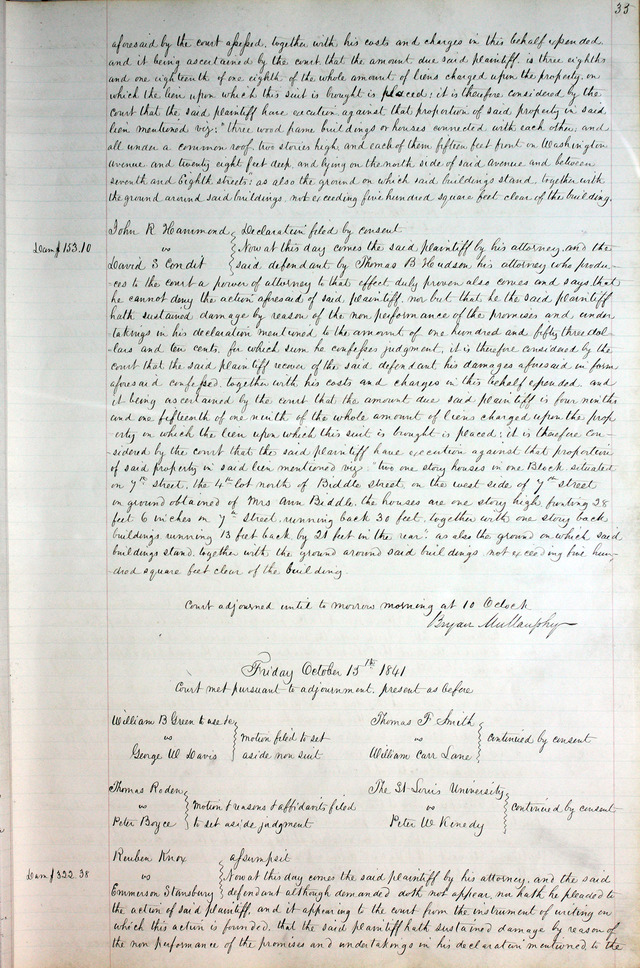 33
aforesaid by the court assessed, together with his costs and charges in this behalf expended.
and it being ascertained by the court that the amount due said plaintiff, is three eighths
and one eighteenth of one eighth of the whole amount of liens charged upon the property, on
which the lien upon which this suit is brought is placed; it is therefore considered by the
court that the said plaintiff have execution against that proportion of said property in said
lien mentioned viz: "three wood frame buildings or houses connected with each other, and
all under a common roof, two stories high, and each of them fifteen feet front on Washington
avenue and twenty eight feet deep and lying on the north side of said avenue and between
seventh and Eighth streets: as also the ground on which said buildings stand, together with
the ground around said buildings, not exceeding five hundred square feet clear of the building.
John R Hammond Declaration filed by consent
Dam $153.10 vs Now at this day comes the said plaintiff by his attorney, and the
David S Condit said defendant by Thomas B Hudson his attorney who produ-
ces to the court a power of attorney to that effect duly proven also comes and says that
he cannot deny the action aforesaid of said plaintiff, nor but that he the said plaintiff
hath sustained damage by reason of the non performance of the promises and under
takings in his declaration mentioned to the amount of one hundred and fifty three dol
lars and ten cents, for which sum he confesses judgment, it is therefore considered by the
court that the said plaintiff recover of the said defendant his damages aforesaid in form
aforesaid confessed, together with his costs and charges in this behalf expended. and
it being ascertained by the court that the amount due said plaintiff is four ninths
and one fifteenth of one ninth of the whole amount of liens charged upon the prop
erty on which the lien upon which this suit is brought is placed; it is therefore con-
sidered by the court that the said plaintiff have execution against that proportion
of said property in said lien mentioned viz "two one story houses in one Block situated
on 7th street, the 4th lot north of Biddle street, on the west side of 7th street
on ground obtained of Mrs Ann Biddle, the houses are one story high, fronting 28
feet 6 inches on 7th street, running back 30 feet, together with one story back
buildings, running 13 feet back by 21 feet in the rear: as also the ground on which said
buildings stand, together with the ground around said buildings, not exceeding five hun-
dred square feet clear of the building
Court adjourned until to morrow morning at 10 Oclock
Bryan Mullanphy
Friday October 15th 1841
Court met pursuant to adjournment. present as before
William B Green to use &c
vs motion filed to set
George W Davis aside non suit
Thomas F Smith
vs continued by consent
William Carr Lane
Thomas Roden
vs Motion & reasons & affidavits filed
Peter Boyce to set aside judgment
The St Louis University
vs continued by consent
Peter W Kenedy
Reuben Knox assumpsit
Dam $322.38 vs Now at this day comes the said plaintiff by his attorney, and the said
Emmerson Stansbury defendant although demanded doth not appear, nor hath he pleaded to
the action of said plaintiff, and it appearing to the court from the instrument of writing on
which this action is founded, that the said plaintiff hath sustained damage by reason of
the non performance of the promises and undertakings in his declaration mentioned to the